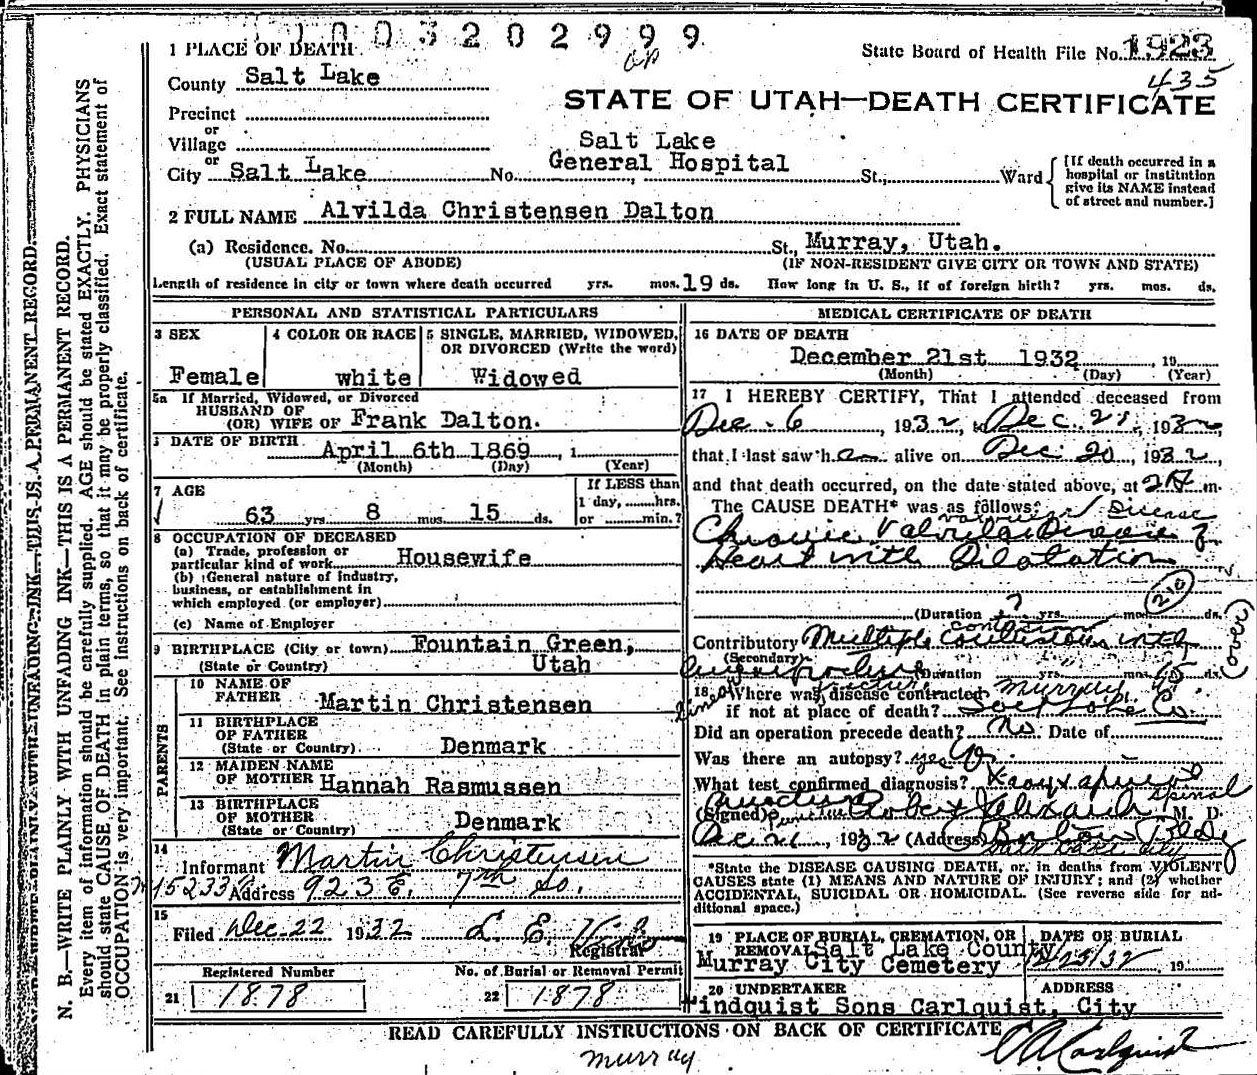 1003202999
1 PLACE OF DEATH
State Board of Health File No. 1923
435
County Salt Lake
STATE OF UTAH—DEATH CERTIFICATE
Precinct
or
Village
Salt Lake
or
City Salt Lake No. General Hospital St., Ward
[If death occurred in a
hospital or institution
give its NAME instead
of street and number.]
2 FULL NAME Alvilda Christensen Dalton
(a) Residence. No. St., Murray, Utah.
(USUAL PLACE OF ABODE) (IF NON-RESIDENT GIVE CITY OR TOWN AND STATE)
Length of residence in city or town where death occurred yrs. mos. 19 ds. How long in U. S., if of foreign birth? yrs. mos. ds.
PERSONAL AND STATISTICAL PARTICULARS
3 SEX
Female
4 COLOR OR RACE
white
5 SINGLE, MARRIED, WIDOWED,
OR DIVORCED (Write the word)
Widowed
5a If Married, Widowed, or Divorced
HUSBAND OF
(OR) WIFE OF Frank Dalton.
DATE OF BIRTH
April 6th 1869 , 1
(Month) (Day) (Year)
7 AGE
63 yrs 8 mos. 15 ds.
If LESS than
1 day, hrs.
or min.?
8 OCCUPATION OF DECEASED
(a) Trade, profession or
particular kind of work Housewife
(b) General nature of industry,
business, or establishment in
which employed (or employer)
(c) Name of Employer
9 BIRTHPLACE (City or town) Fountain Green,
(State or Country) Utah
PARENTS
10 NAME OF
FATHER Martin Christensen
11 BIRTHPLACE
OF FATHER
(State or Country) Denmark
12 MAIDEN NAME
OF MOTHER Hannah Rasmussen
13 BIRTHPLACE
OF MOTHER
(State or Country) Denmark
14
Informant Martin Christensen
Address 923 E. 7th So.
15
Filed Dec 22 1932 L. E.
Registrar
Registered Number
21 1878
No. of Burial or Removal Permit
22 1878
MEDICAL CERTIFICATE OF DEATH
16 DATE OF DEATH
December 21st 1932 , 19
(Month) (Day) (Year)
17 I HEREBY CERTIFY, That I attended deceased from
Dec. 6 , 1932, to Dec. 21, 1932
that I last saw h alive on Dec. 20, 1932,
and that death occurred, on the date stated above, at 2 m.
The CAUSE DEATH* was as follows:
valvular Disease
Chronic Valvular Disease of
Heart with Dilatation
(Duration ? yrs. mos. ds.
210
contusions
Contributory Multiple contusions with
(Secondary)
(Duration yrs. mos. 15 ds.
(over)
18 Where was disease contracted Murray
if not at place of death? Salt Lake Co.
Did an operation precede death? No. Date of
Was there an autopsy? yes
What test confirmed diagnosis? X-ray &
spinal
(Signed) Robert M. D.
Dec 21, 1932 (Address) Boston Bldg
Salt Lake City
*State the DISEASE CAUSING DEATH, or, in deaths from VIOLENT
CAUSES state (1) MEANS AND NATURE OF INJURY; and (2) whether
ACCIDENTAL, SUICIDAL OR HOMICIDAL. (See reverse side for ad-
ditional space.)
19 PLACE OF BURIAL, CREMATION, OR
REMOVAL Salt Lake County
Murray City Cemetery
DATE OF BURIAL
12/23/32 19
20 UNDERTAKER ADDRESS
indquist Sons Carlquist, City
READ CAREFULLY INSTRUCTIONS ON BACK OF CERTIFICATE
Murray
N. B.—WRITE PLAINLY WITH UNFADING INK—THIS IS A PERMANENT RECORD.
Every item of information should be carefully supplied. AGE should be stated EXACTLY. PHYSICIANS
should state CAUSE OF DEATH in plain terms, so that it may be properly classified. Exact statement of
OCCUPATION is very important. See instructions on back of certificate.